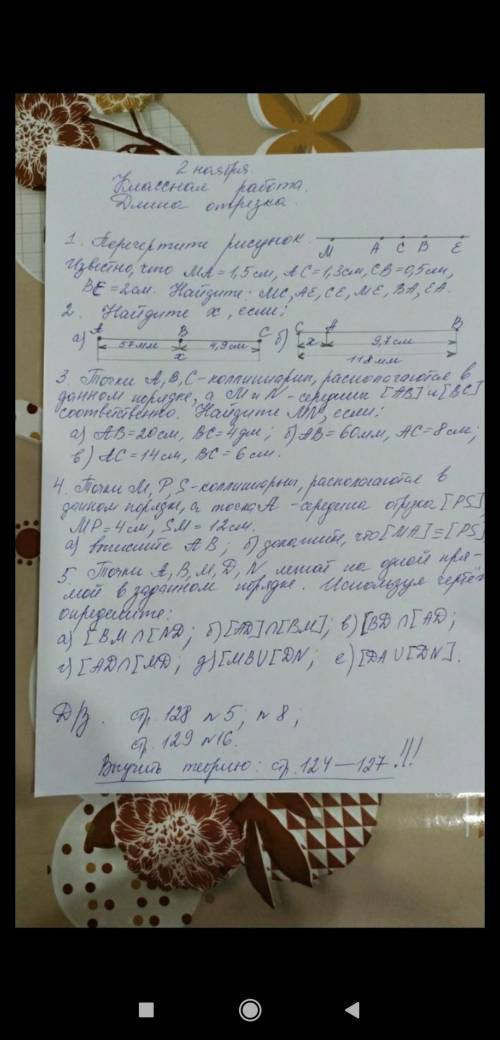 2 ноября.
Классная работа.
Длина отрезка.
1. Перечертите рисунок. M A C B E
Известно, что MA = 1,5 см, AC = 1,3 см, CB = 0,5 см,
BE = 2 см. Найдите: MC, AE, CE, ME, BA, EA.
2. Найдите x, если:
а) A B C 57 мм 4,9 см x б) C A B x 9,7 см 118 мм
3. Точки A, B, C - коллинеарны, располагаются в
данном порядке, а M и N - середины [AB] и [BC]
соответственно. Найдите MN, если:
а) AB = 20 см, BC = 4 дм; б) AB = 60 мм, AC = 8 см;
в) AC = 14 см, BC = 6 см.
4. Точки M, P, S - коллинеарны, располагаются в
данном порядке, а точка A - середина отрезка [PS],
MP = 4 см, SM = 12 см.
а) вычислите AB; б) докажите, что [MA] ≡ [PS]
5. Точки A, B, M, D, N лежат на одной пря-
мой в заданном порядке. Используя чертёж
определите:
а) [BM ∩ [ND; б) [AD] ∩ [BM]; в) [BD ∩ [AD;
г) [AD ∩ [MD; д) [MB ∪ [DN; е) [DA ∪ [DN].
Д/з. стр. 128 №5; №8;
стр. 129 №16.
Выучить теорию: стр. 124 — 127 !!!